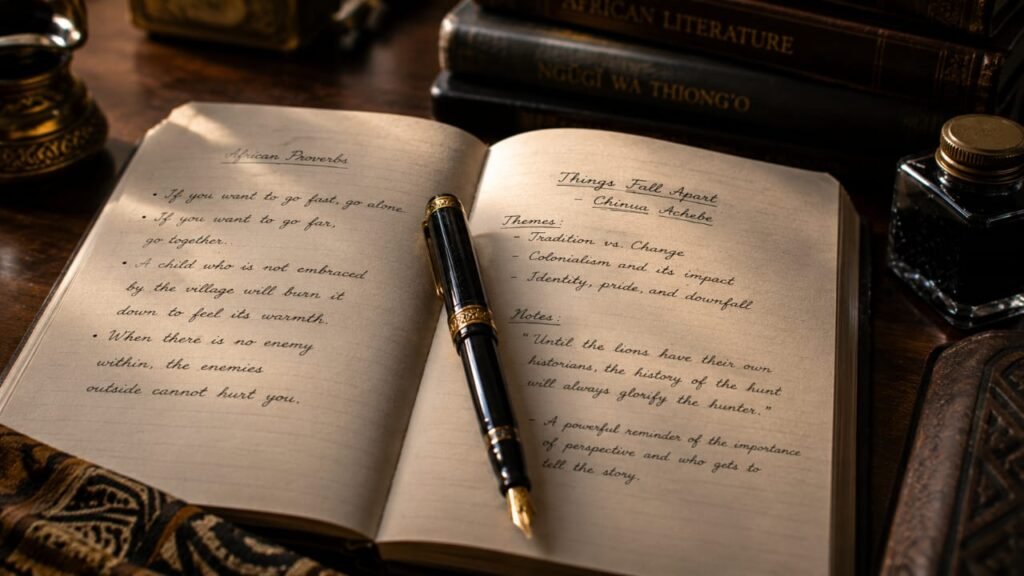 AFRICAN LITERATURE
NGŨGĨ WA THIONG'O
African Proverbs
• If you want to go fast, go alone.
• If you want to go far,
go together.
• A child who is not embraced
by the village will burn it
down to feel its warmth.
• When there is no enemy
within, the enemies
outside cannot hurt you.
Things Fall Apart
- Chinua Achebe
Themes:
- Tradition vs. Change
- Colonialism and its impact
- Identity, pride, and downfall
Notes:
"Until the lions have their own
historians, the history of the hunt
will always glorify the hunter."
- A powerful reminder of the importance
of perspective and who gets to
tell the story.